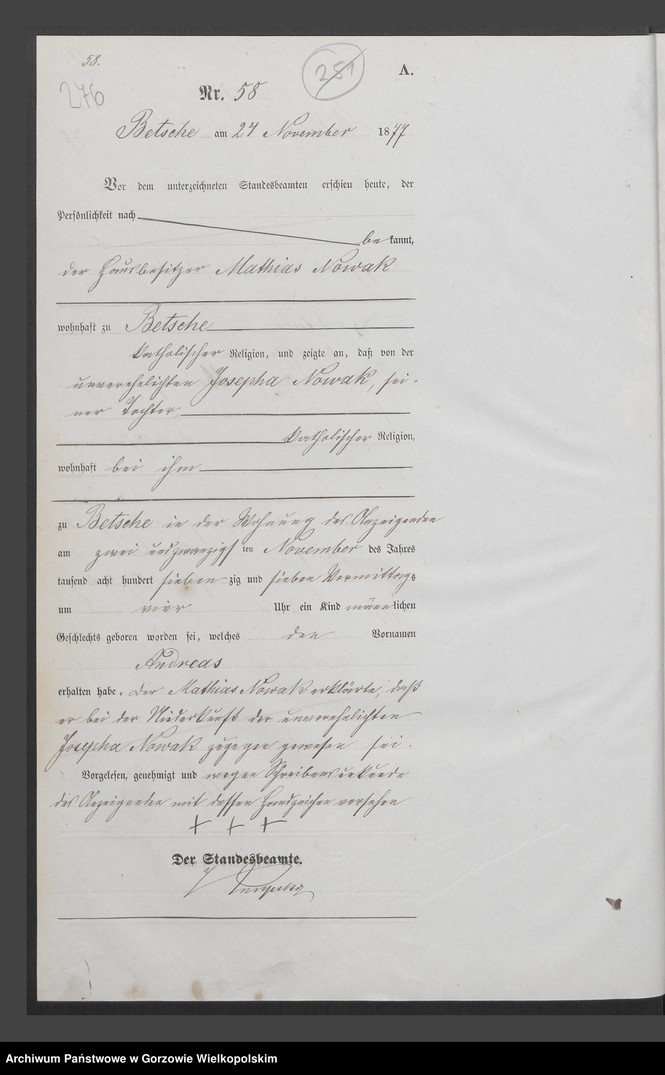 58.
276
251
A.
Nr. 58
Betsche am 24 November 1877
Vor dem unterzeichneten Standesbeamten erschien heute, der
Persönlichkeit nach
be kannt,
der Hausbesitzer Mathias Nowak
wohnhaft zu Betsche
katholischer Religion, und zeigte an, daß von der
unverehelichten Josepha Nowak, sei-
ner Tochter,
katholischer Religion,
wohnhaft bei ihm
zu Betsche in der Wohnung des Anzeigenden
am zwei und zwanzigsten November des Jahres
tausend acht hundert sieben zig und sieben Vormittags
um vier Uhr ein Kind männlichen
Geschlechts geboren worden sei, welches den Vornamen
Andreas
erhalten habe. Der Mathias Nowak erklärte, daß
er bei der Niederkunft der unverehelichten
Josepha Nowak zugegen gewesen sei.
Vorgelesen, genehmigt und wegen Schreibensunkunde
des Anzeigenden mit dessen Handzeichen versehen
+ + +
Der Standesbeamte.
Archiwum Państwowe w Gorzowie Wielkopolskim